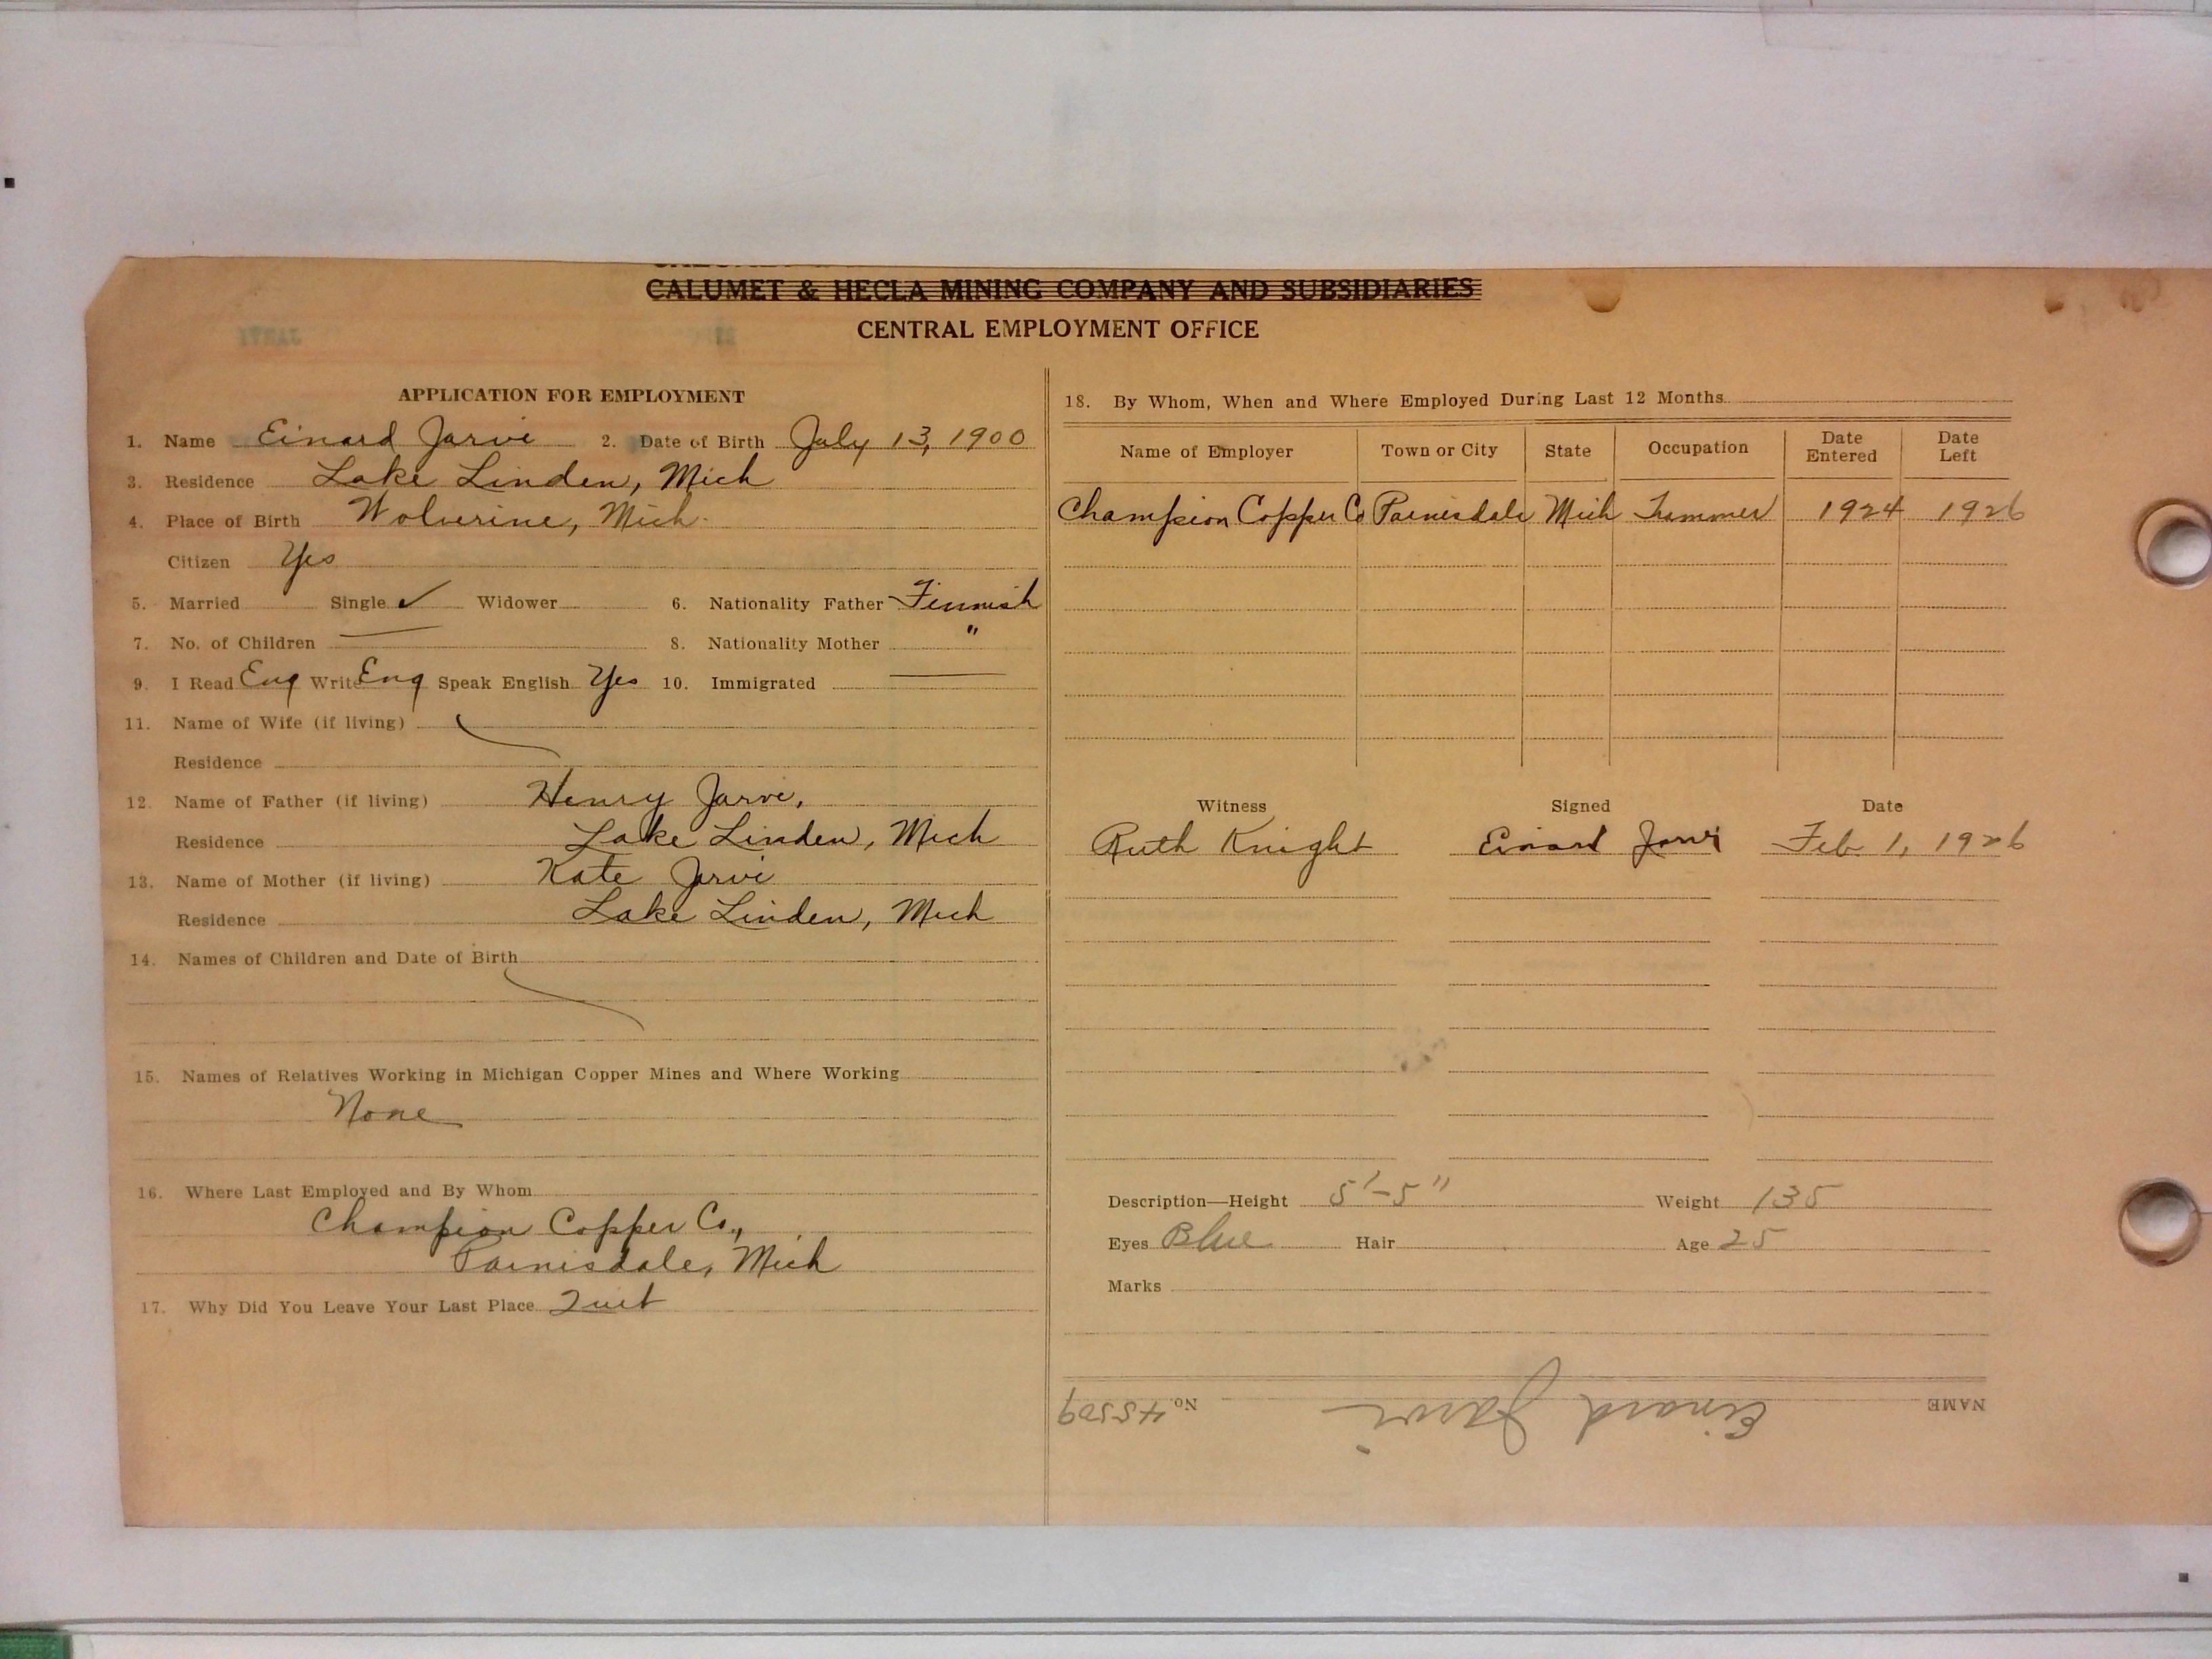 CALUMET & HECLA MINING COMPANY AND SUBSIDIARIES
CENTRAL EMPLOYMENT OFFICE
APPLICATION FOR EMPLOYMENT
1. Name Einard Jarvi 2. Date of Birth July 13, 1900
3. Residence Lake Linden, Mich
4. Place of Birth Wolverine, Mich.
Citizen Yes
5. Married Single ✓ Widower 6. Nationality Father Finnish
7. No. of Children — 8. Nationality Mother "
9. I Read Eng Write Eng Speak English Yes 10. Immigrated —
11. Name of Wife (if living)
Residence
12. Name of Father (if living) Henry Jarvi,
Residence Lake Linden, Mich
13. Name of Mother (if living) Kate Jarvi
Residence Lake Linden, Mich
14. Names of Children and Date of Birth
15. Names of Relatives Working in Michigan Copper Mines and Where Working
None
16. Where Last Employed and By Whom
Champion Copper Co.,
Painisdale, Mich
17. Why Did You Leave Your Last Place Quit
18. By Whom, When and Where Employed During Last 12 Months
Name of Employer Town or City State Occupation Date Entered Date Left
Champion Copper Co Painisdale Mich Trammer 1924 1926
Witness Signed Date
Ruth Knight Einard Jarvi Feb. 1, 1926
Description—Height 5'-5" Weight 135
Eyes Blue Hair Age 25
Marks
NAME Einard Jarvi No. 45509